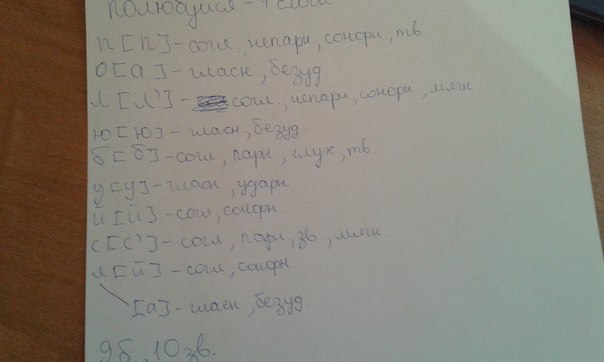 полюбуйся - 4 слога
п [п] - согл, непарн, сонорн, тв.
о [а] - гласн, безуд
л [л'] - согл., непарн, сонорн, мягк
ю [ю] - гласн, безуд
б [б] - согл, парн, глух, тв.
у [у] - гласн, ударн
й [й] - согл, сонорн.
с [с'] - согл, парн, зв, мягк
я [й] - согл, сонорн.
[а] - гласн, безуд.
9б, 10зв.